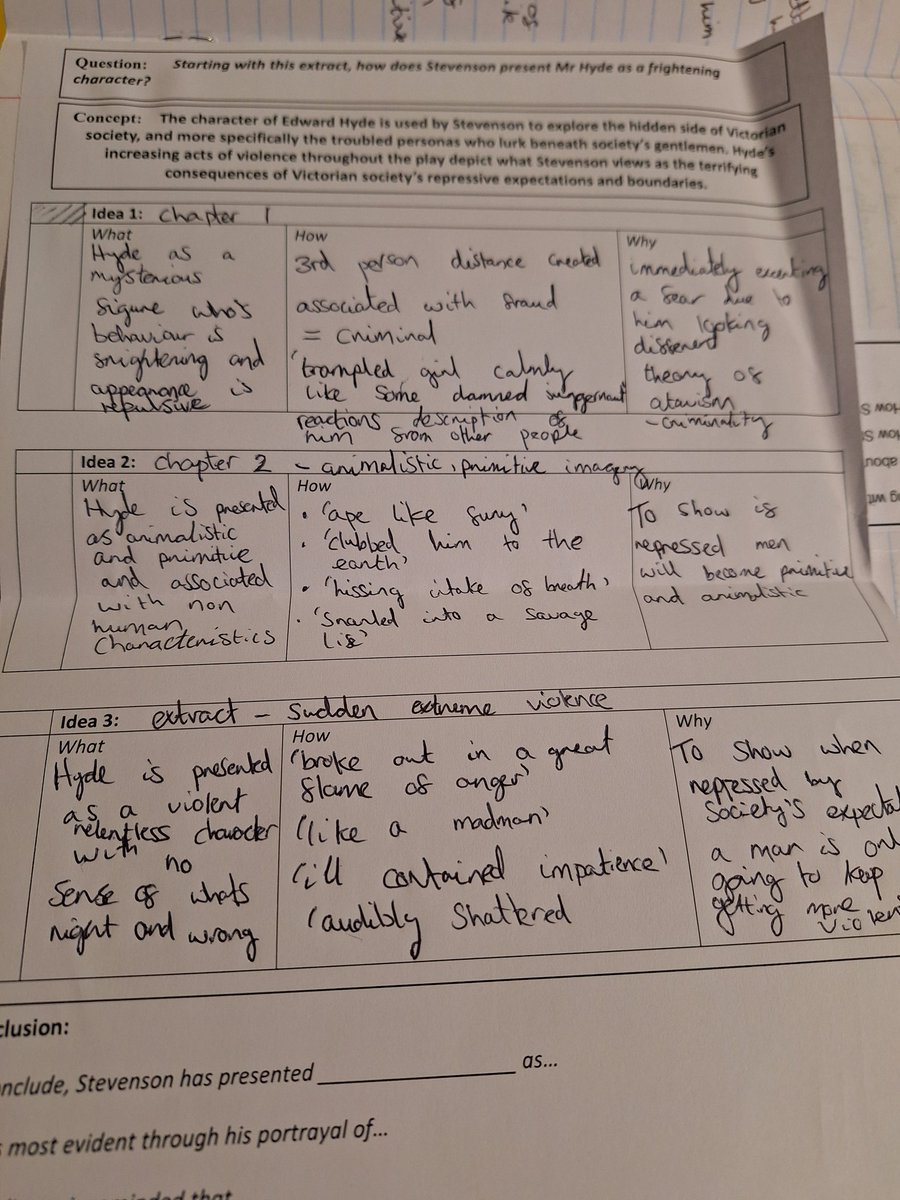 Question: Starting with this extract, how does Stevenson present Mr Hyde as a frightening
character?
Concept: The character of Edward Hyde is used by Stevenson to explore the hidden side of Victorian
society, and more specifically the troubled personas who lurk beneath society's gentlemen. Hyde's
increasing acts of violence throughout the play depict what Stevenson views as the terrifying
consequences of Victorian society's repressive expectations and boundaries.
Idea 1: Chapter 1
What
Hyde as a
mysterious
figure who's
behaviour is
frightening and
appearance is
repulsive
How
3rd person distance created
associated with fraud
= criminal
'trampled girl calmly
like some damned juggernaut'
reactions description of
him from other people
Why
immediately
a fear due to
him looking
different
theory of
atavism
- criminality
Idea 2: chapter 2 - animalistic, primitive imagery
What
Hyde is presented
as animalistic
and primitive
and associated
with non
human
characteristics
How
• 'ape like fury'
• 'clubbed him to the
earth'
• 'hissing intake of breath'
• 'Snarled into a savage
Why
To show is
repressed men
will become primitive
and animalistic
Idea 3: extract - Sudden extreme violence
What
Hyde is presented
as a violent
relentless character
with no
sense of whats
right and wrong
How
'broke out in a great
flame of anger'
'like a madman'
'ill contained impatience'
'audibly Shattered
Why
To show when
repressed by
society's
a man is
going to keep
getting more
clusion:
nclude, Stevenson has presented ____________ as...
most evident through his portrayal of...
him
of
him